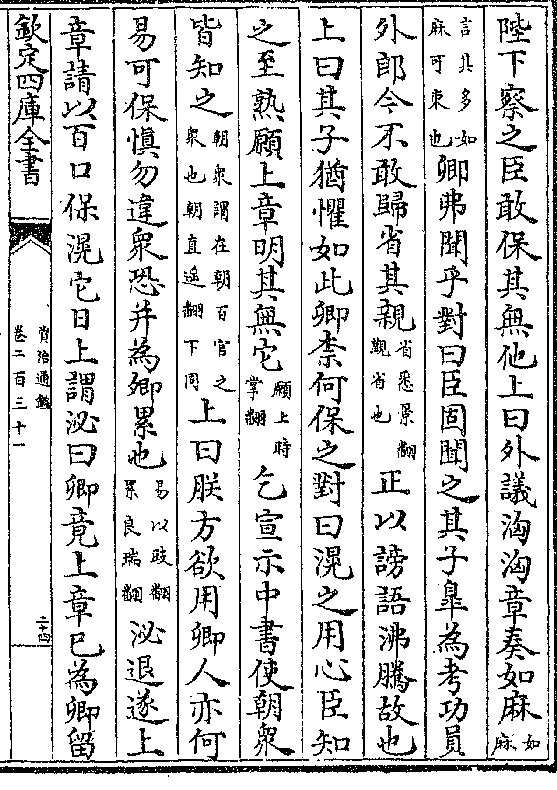 陛下察之臣敢保其無他上曰外議洶洶章奏如麻如麻
言其多如麻可束也卿弗聞乎對曰臣固聞之其子臯為考功員
外郎今不敢歸省其親省悉景翻覲省也正以謗語沸騰故也
上曰其子猶懼如此卿柰何保之對曰滉之用心臣知
之至熟願上章明其無它願上時掌翻乞宣示中書使朝衆
皆知之朝衆謂在朝百官之衆也朝直遥翻下同上曰朕方欲用卿人亦何
易可保愼勿違衆恐并為卿累也易以豉翻累良瑞翻泌退遂上
章請以百口保滉它日上謂泌曰卿竟上章已為卿留
欽定四庫全書
資治通鑑
卷二百三十一
二十四